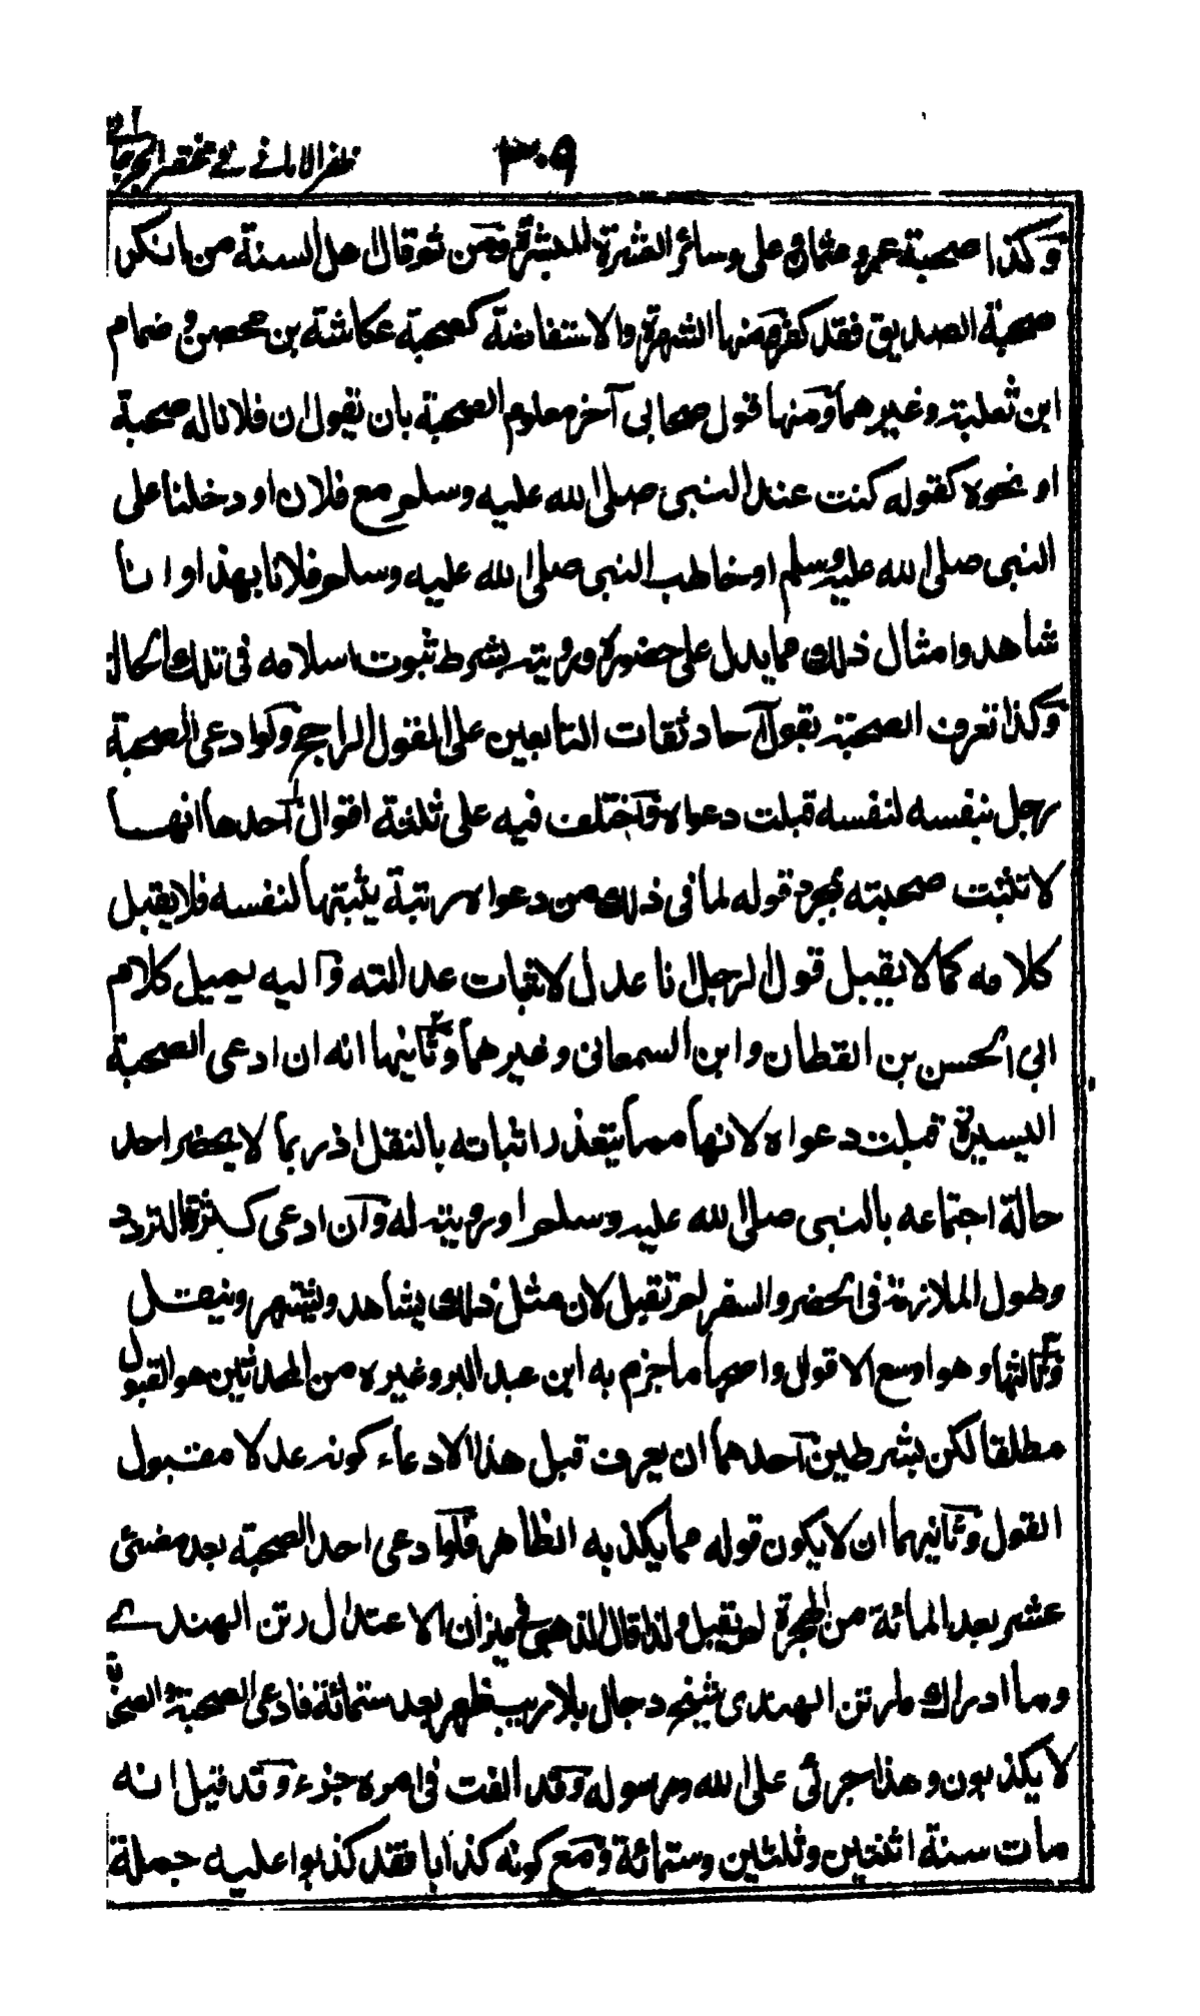 ٣٠٩ ظفر الاماني في مختصر الجرجاني
وكذا صحبة عمر وعثمان وعلى وسائر العشرة المبشرة ومن ثم قال اهل السنة من انكر
صحبة الصديق فقد كفر ومنها الشهرة والاستفاضة كصحبة عكاشة بن محصن وضمام
ابن ثعلبة وغيرهما ومنها قول صحابى آخر معلوم الصحبة بان نقول ان فلانا له صحبة
او نحوه كقوله كنت عند النبى صلى الله عليه وسلم مع فلان او دخلنا على
النبى صلى الله عليه وسلم او خاطب النبى صلى الله عليه وسلم فلانا بهذا وانا
شاهد وامثال ذلك مما يدل على حضوره ورويته بشرط ثبوت اسلامه فى تلك الحالة
وكذا تعرف الصحبة بقول آحاد ثقات التابعين على القول الراجح ولو ادعى الصحبة
رجل بنفسه لنفسه قبلت دعواه واختلف فيه على ثلثة اقوال احدها انها
لا تثبت صحبته بمجرد قوله لما فى ذلك من دعواه مرتبة يثبتها لنفسه فلا يقبل
كلامه كما لا يقبل قول الرجل انا عدل لاثبات عدالته واليه يميل كلام
ابى الحسن بن القطان وابن السمعانى وغيرهما وثانيها انه ان ادعى الصحبة
اليسيرة قبلت دعواه لانها مما يتعذر اثباته بالنقل اذ ربما لا يحضر احد
حالة اجتماعه بالنبى صلى الله عليه وسلم او رويته له وان ادعى كثرة التردد
وطول الملازمة فى الحضر والسفر لم تقبل لان مثل ذلك يشاهد ويشتهر وينقل
وثالثها وهو اوسع الاقوال واصحها ما جزم به ابن عبد البر وغيره من المحدثين هو القبول
مطلقا لكن بشرطين احدهما ان يعرف قبل هذا الادعاء كونه عدلا مقبول
القول وثانيهما ان لا يكون قوله مما يكذبه الظاهر فلو ادعى احد الصحبة بعد مضئى
عشر بعد المائة من الهجرة لم يقبل ولذا قال الذهبى فى ميزان الاعتدال رتن الهندى
وما ادراك ما رتن الهندى شيخ دجال بلا ريب ظهر بعد ستمائة فادعى الصحبة والصحابة
لا يكذبون وهذا جرئى على الله ورسوله وقد الفت فى امره جزء وقد قيل انه
مات سنة اثنتين وثلثين وستمائة ومع كونه كذابا فقد كذبوا عليه جملة